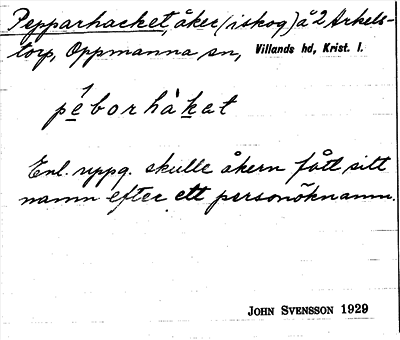 Pepparhacket, åker (i skog) å 2 Arkels-
torp, Oppmanna sn, Villands hd, Krist. l.
pèborhàkat
Enl. uppg. skulle åkern fått sitt
namn efter ett personöknamn.
JOHN SVENSSON 1929